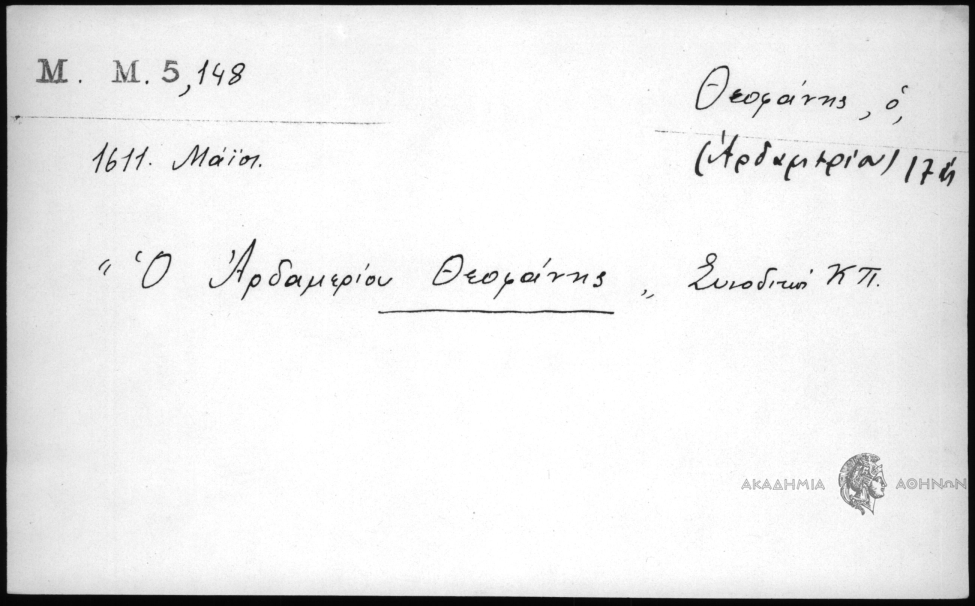 M. M. 5,148
Θεοφάνης, ὁ,
(Ἀρδαμερίου) 17ῃ
1611. Μάϊος.
"Ὁ Ἀρδαμερίου Θεοφάνης„ Συνοδικοί ΚΠ.
ΑΚΑΔΗΜΙΑ ΑΘΗΝΩΝ